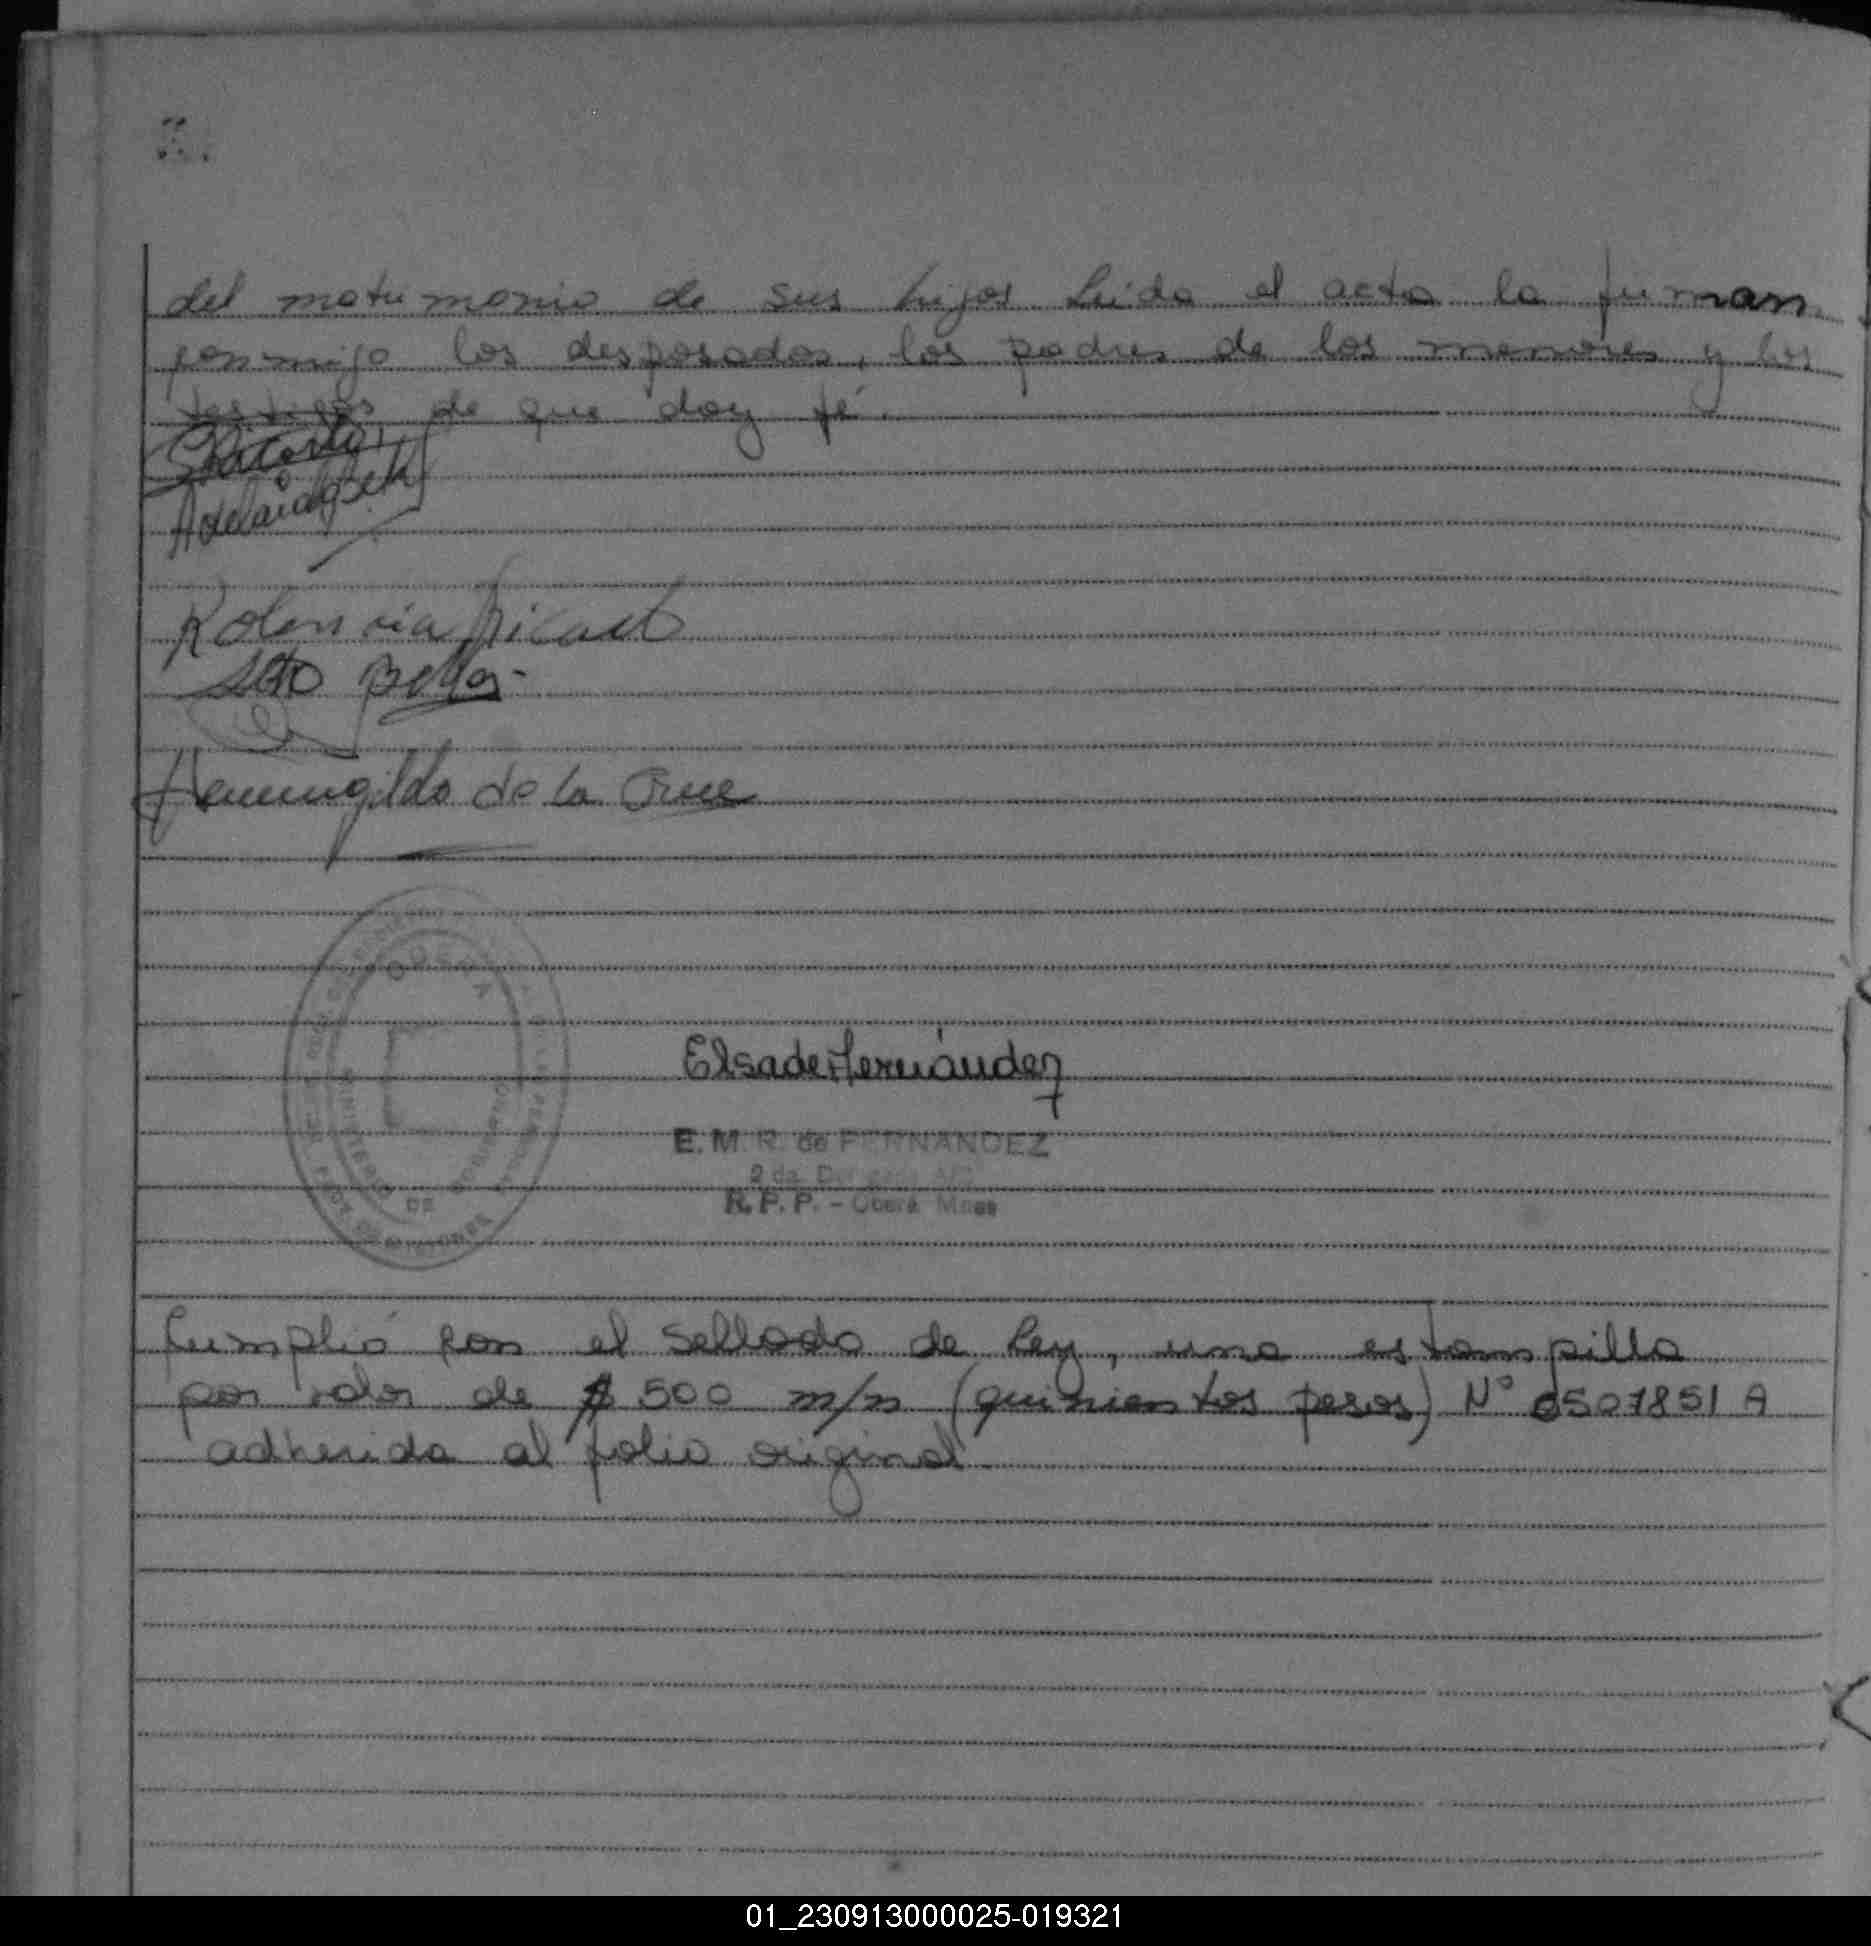 del matrimonio de sus hijos Leida el acta la firman
conmigo los desposados, los padres de los menores y los
testigos de que doy fé.
Hermenegildo de la Cruz
OBERA
MINISTERIO DE GOBERNACION
Elsa de Fernández
E. M. R. de FERNANDEZ
R. P. P. - Oberá Mnes
Cumplió con el Sellado de Ley, una estampilla
por valor de $ 500 m/n (quinientos pesos) N° 0507851 A
adherida al folio original
01_230913000025-019321